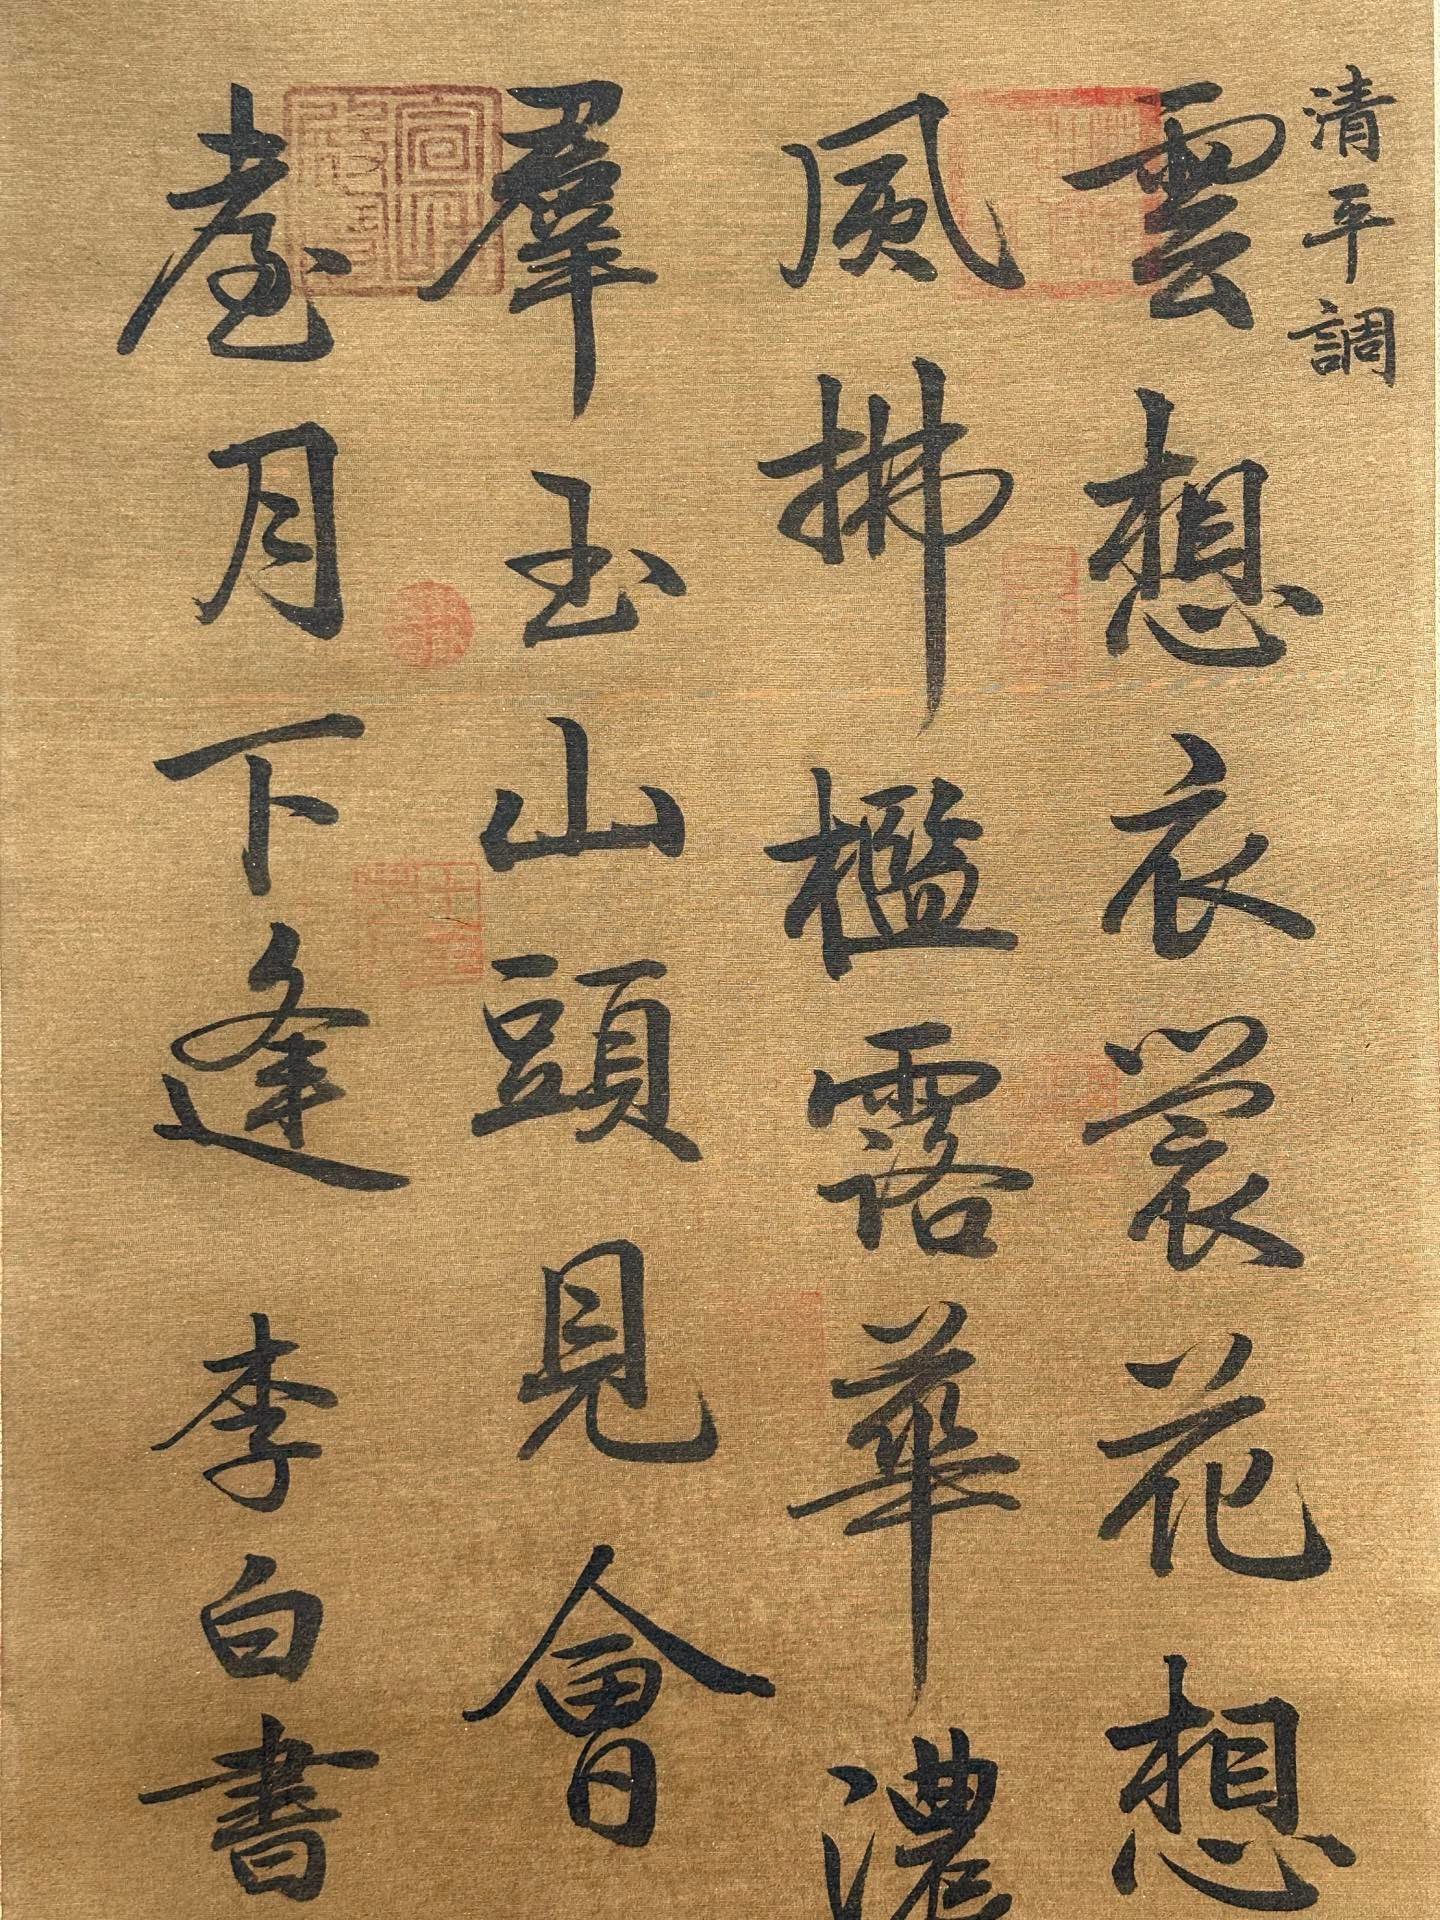 清平調
雲想衣裳花想
風拂檻露華濃
羣玉山頭見會
臺月下逢 李白書